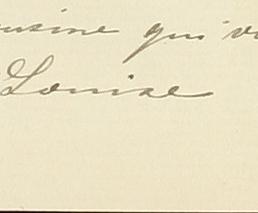 ousine qui v
Louise